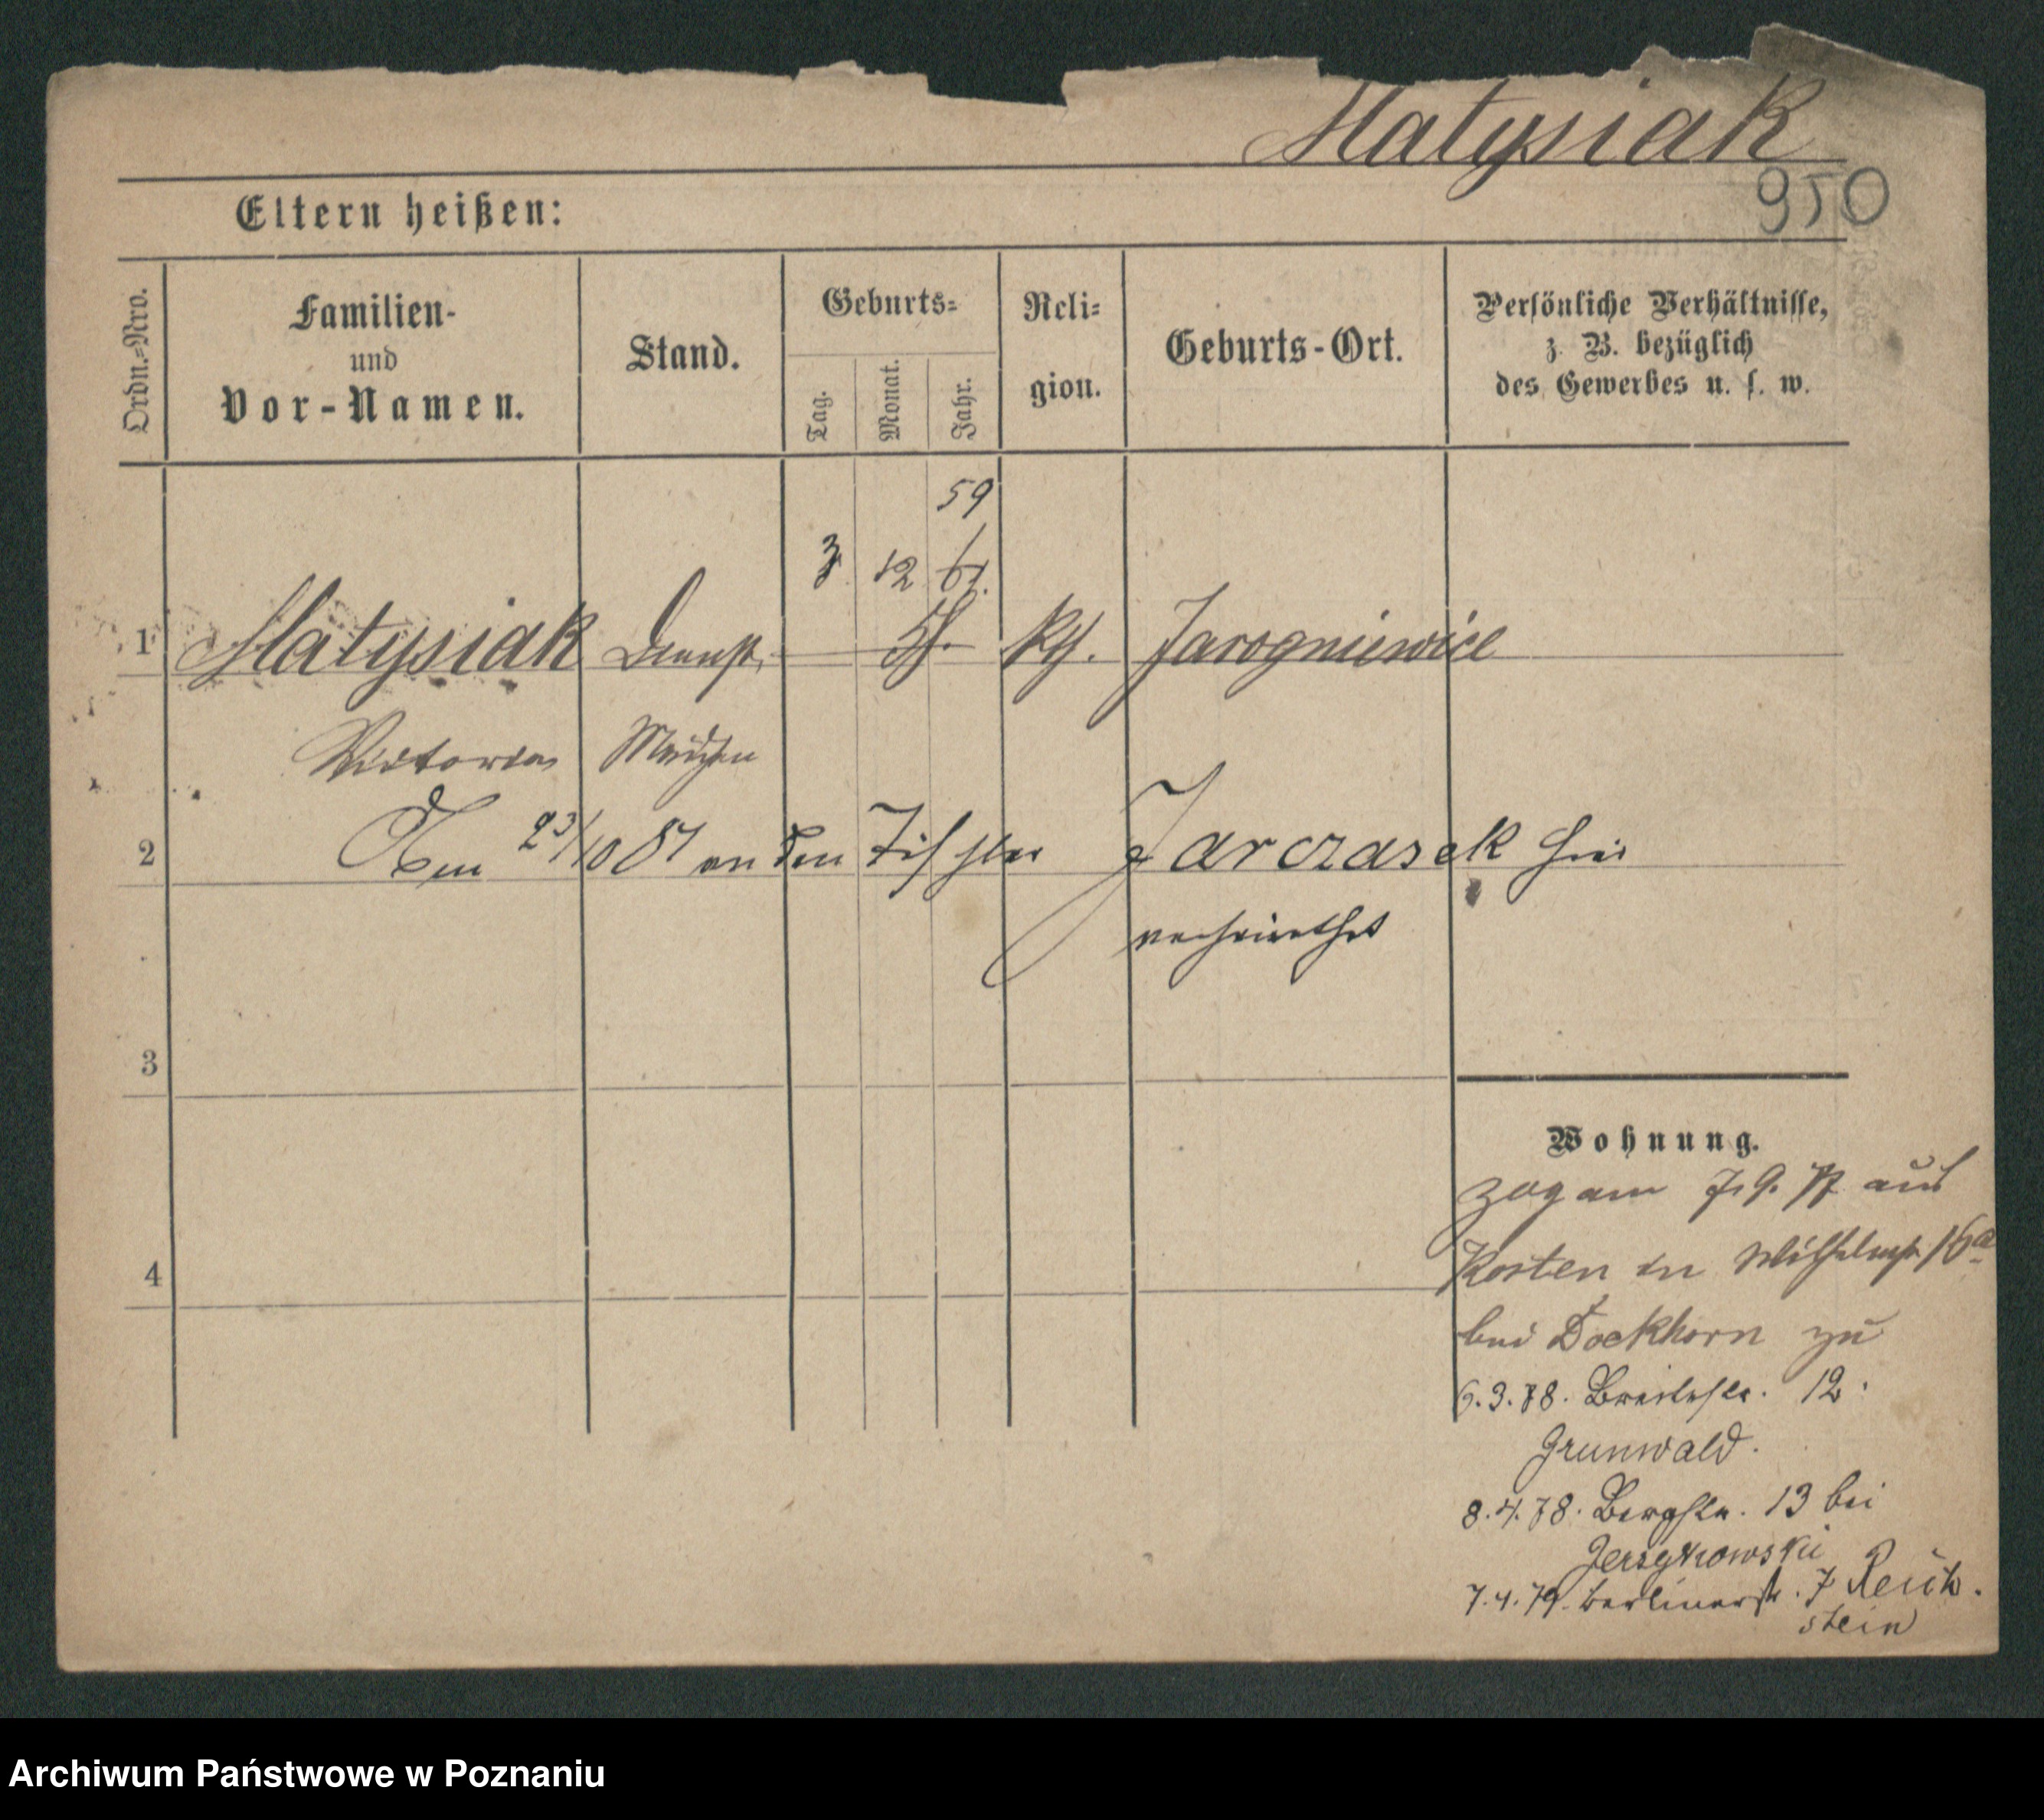 Matysiak
950
Eltern heißen:
Ordn.=Nro.
Familien-
und
Vor-Namen.
Stand.
Geburts=
Tag.
Monat.
Jahr.
Reli=
gion.
Geburts-Ort.
Persönliche Verhältnisse,
z. B. bezüglich
des Gewerbes u. s. w.
59
3 12 61.
1 Matysiak Dienst kth. Jarogniewice
Victoria Mädchen
2 Am 23/10 87 an den Tischler Jarczasek hier
verheirathet
3
Wohnung.
zog am 7.9. 77 aus
4
Kosten in Wilhelmstr 16a
bei Dockhorn zu
6.3.78. Breitestr. 12.
Grunwald.
8.4.78. Bergstr. 13 bei
Jerzykowski
7.4.79. Berlinerstr. 7 Reich.
stein
Archiwum Państwowe w Poznaniu